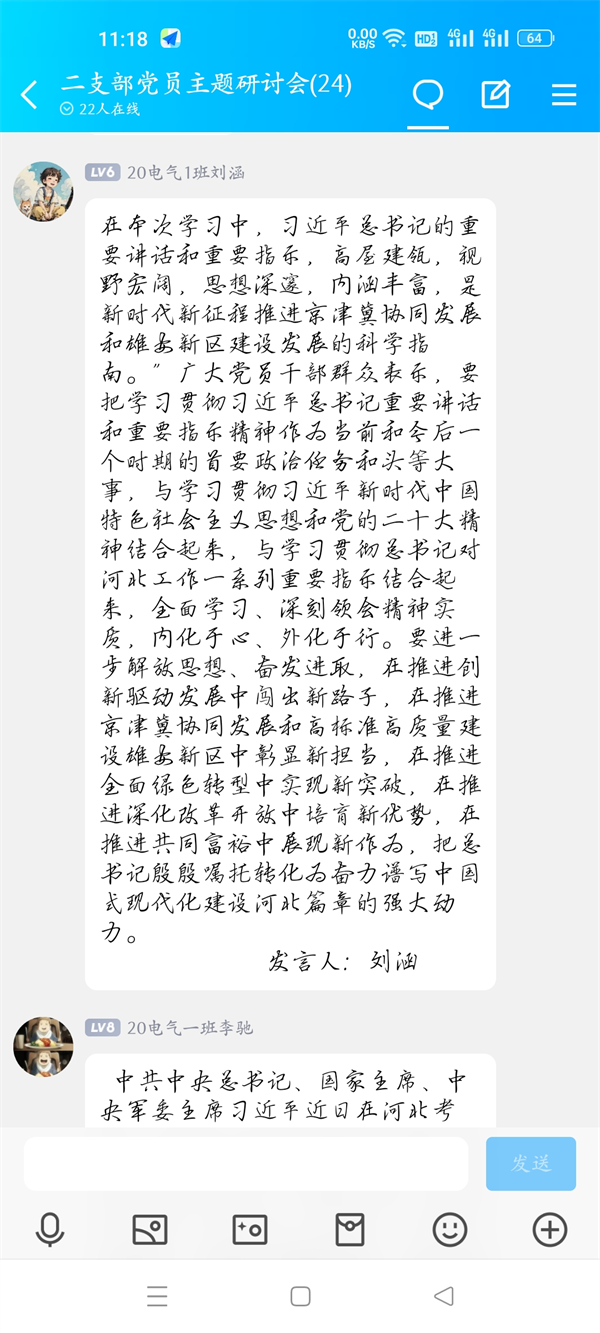 11:18
0.00
KB/S
HD
4G
4G
64
二支部党员主题研讨会(24)
22人在线
LV6 20电气1班刘涵
在本次学习中，习近平总书记的重
要讲话和重要指示，高屋建瓴，视
野宏阔，思想深邃，内涵丰富，是
新时代新征程推进京津冀协同发展
和雄安新区建设发展的科学指
南。”广大党员干部群众表示，要
把学习贯彻习近平总书记重要讲话
和重要指示精神作为当前和今后一
个时期的首要政治任务和头等大
事，与学习贯彻习近平新时代中国
特色社会主义思想和党的二十大精
神结合起来，与学习贯彻总书记对
河北工作一系列重要指示结合起
来，全面学习、深刻领会精神实
质，内化于心、外化于行。要进一
步解放思想、奋发进取，在推进创
新驱动发展中闯出新路子，在推进
京津冀协同发展和高标准高质量建
设雄安新区中彰显新担当，在推进
全面绿色转型中实现新突破，在推
进深化改革开放中培育新优势，在
推进共同富裕中展现新作为，把总
书记殷殷嘱托转化为奋力谱写中国
式现代化建设河北篇章的强大动
力。
发言人：刘涵
LV8 20电气一班李驰
中共中央总书记、国家主席、中
央军委主席习近平近日在河北考
发送